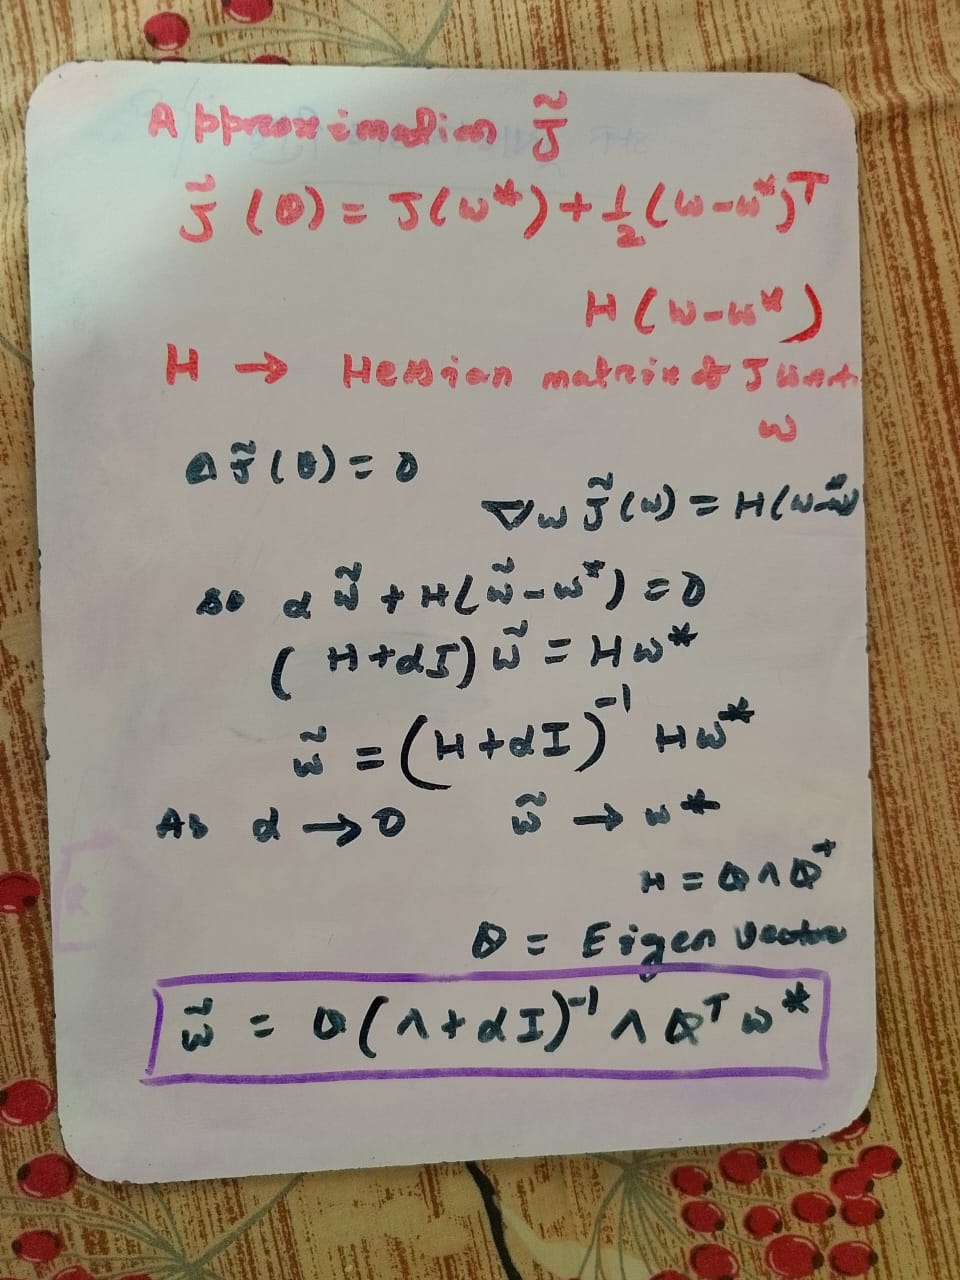 Approximation J̃
J̃ (θ) = J(w*) + 1/2 (w-w*)ᵀ
H (w-w*)
H → Hessian matrix of J w.r.t.
w
Δ J̃ (θ) = 0
∇w J̃ (w) = H(w-w*)
so α w̃ + H(w̃-w*) = 0
(H+αI) w̃ = Hw*
w̃ = (H+αI)⁻¹ Hw*
As α → 0 w̃ → w*
H = QΛQᵀ
Q = Eigen vector
w̃ = Q(Λ+αI)⁻¹ Λ Qᵀ w*